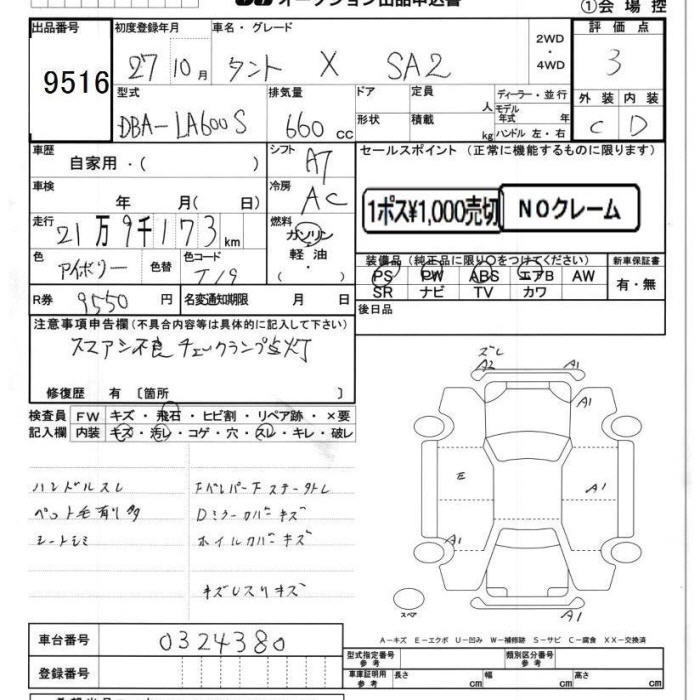 オークション出品申込書
①会場控
出品番号 初度登録年月 車名・グレード 評価点
9516 27 10月 タント X SA2 2WD・4WD 3
型式 排気量 ドア 定員 ディーラー・並行 外装 内装
DBA-LA600S 660cc 形状 積載 人 kg モデル年式 年 ハンドル 左・右 C D
車歴 シフト セールスポイント (正常に機能するものに限ります)
自家用・( ) AT
車検 冷房
年 月( 日) AC 1ポス¥1,000売切 NOクレーム
走行 燃料
21万9千173km ガソリン・軽油・( )
色 色替 色コード 装備品 (純正品に限り○をつけてください) 新車保証書
アイボリー T19 PS PW ABS エアB AW 有・無
SR ナビ TV カワ
R券 9550円 名変通知期限 月 日 後日品
注意事項申告欄 (不具合内容等は具体的に記入して下さい)
スマアシ不良 チェックランプ点灯
修復歴 有 〔箇所 〕
検査員 FW キズ・飛石・ヒビ割・リペア跡・×要
記入欄 内装 キズ・汚レ・コゲ・穴・スレ・キレ・破レ
ズレ
A2 A1
A1
ハンドルスレ FバンパーFステータレ
E A1
ペット毛有り多 Dミラーカバーキズ
シートシミ ホイルカバーキズ
A1
キズしスリキズ
スペア A1
車台番号 0324380
A-キズ E-エクボ U-凹み W-補修跡 S-サビ C-腐食 XX-交換済
登録番号
型式指定番号 参考 類別区分番号 参考
車庫証明用 参考 長さ cm 幅 cm 高さ cm